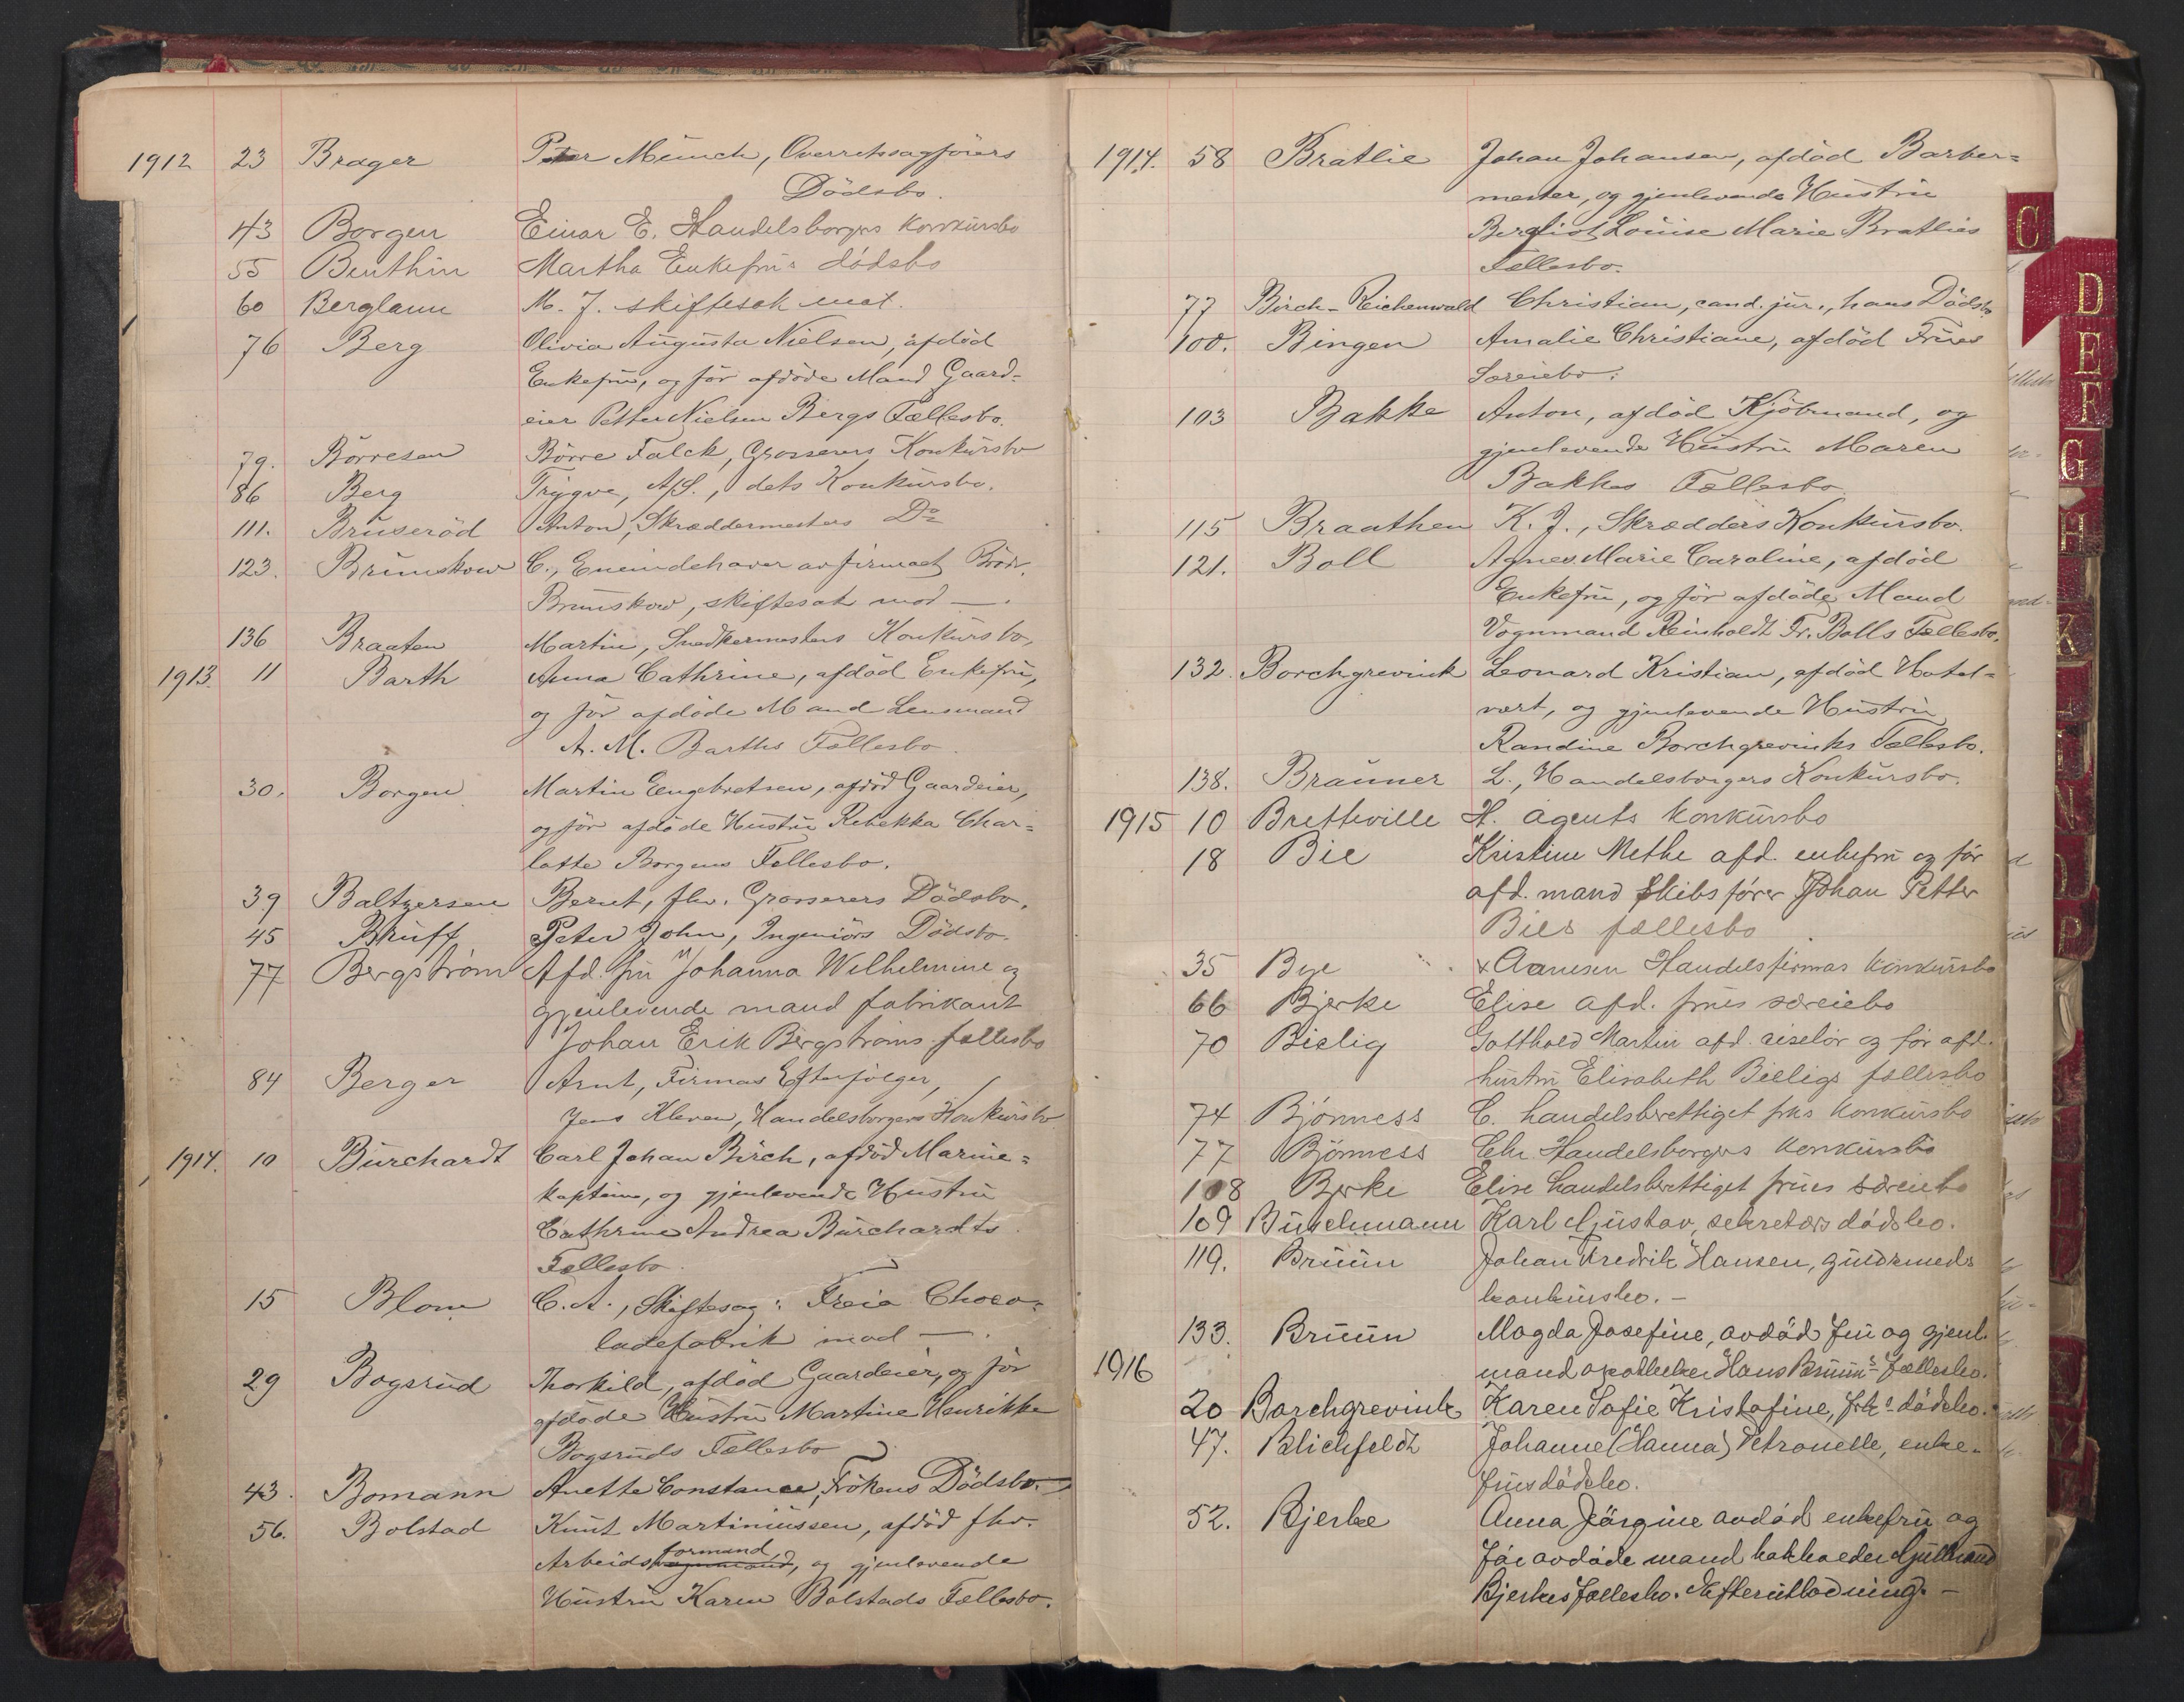 1912 23 Brager Peter Münch, Overretssagförers
Dödsbo.
43 Borgen Einar E. Handelsborgers konkursbo
55 Benthin Martha Enkefrus dödsbo
60 Berglann M. J. skiftesak mot.
76 Berg Olivia Augusta Nielsen, afdöd
Enkefru, og för afdöde Mand Gaard-
eier Petter Nielsen Bergs Fællesbo.
79. Börresen Börre Falck, Grosserers Konkursbo
86 Berg Trygve, A/S., dets Konkursbo.
111. Bruseröd Anton, Skræddermesters Do
123. Brunskow C., Eneindehaver av firmaet Brödr.
Brunskow, skiftesak mod —.
136 Braaten Martin, Snedkermesters Konkursbo,
1913. 11 Barth Anna Cathrine, afdöd Enkefru,
og för afdöde Mand Lensmand
A. M. Barths Fællesbo.
30. Borgen Martin Engebretsen, afdöd Gaardeier,
og för afdöde Hustru Rebekka Char=
lotte Borgens Fællesbo.
39 Baltzersen Bernt, fhv. Grosserers Dödsbo.
45 Bruff Peter John, Ingeniörs Dödsbo.
77 Bergström Afd. fru Johanna Wilhelmine og
gjenlevende mand fabrikant
Johan Erik Bergströms fællesbo
84 Berger Arnt, Firmas Efterfölger,
Jens Kleven, Handelsborgers Konkursbo
1914. 10 Burchardt Carl Johan Birch, afdöd Marine=
kaptein, og gjenlevende Hustru
Cathrine Andrea Burchardts
Fællesbo.
15 Blom C. A., Skiftesag: Freia Choco-
ladefabrik mod —.
29 Bogsrud Thorkild, afdöd Gaardeier, og för
afdöde Hustru Martine Henrikke
Bogsruds Fællesbo
43. Bomann Anette Constance, Frökens Dödsbo.
56. Bolstad Knut Martiniussen, afdöd fhv.
formand
Arbeids, og gjenlevende
Hustru Karen Bolstads Fællesbo.
1914. 58 Bratlie Johan Johansen, afdöd Barber=
mester, og gjenlevende Hustru
Bergliot Louise Marie Bratlies
Fællesbo.
77 Birch-Reichenwald Christian, cand. jur., hans Dödsbo
100. Bingen Amalie Christiane, afdöd Frues
Særeiebo.
103 Bakke Anton, afdöd Kjöbmand, og
gjenlevende Hustru Maren
Bakkes Fællesbo
115 Braathen K. J., Skrædders Konkursbo.
121. Boll Agnes Marie Caroline, afdöd
Enkefru, og för afdöde Mand
Vognmand Reinholdt Fr. Bolls Fællesbo.
132. Borchgrevink Leonard Kristian, afdöd Hotel=
vært, og gjenlevende Hustru
Randine Borchgrevinks Fællesbo.
138. Brauner L., Handelsborgers Konkursbo.
1915 10 Bretteville H. agents konkursbo
18 Bie Kristine Methe afd. enkefru og før
afd. mand skibsfører Johan Petter
Bies fællesbo
35 Bye & Aanesen Handelsfirmas konkursbo
66 Bjerke Elise afd. frues særeiebo
70 Bielig Gotthold Martin afd. ciselör og før afd.
hustru Elisabeth Bieligs fællesbo
74 Bjönness C. handelsberettiget frks konkursbo
77 Bjönness Chr. Handelsborgers konkursbo
108 Bjerke Elise handelsberettiget frues særeiebo
109 Buschmann Karl Gustav, sekretærs dödsbo.
119. Bruun Johan Fredrik Hansen, guldsmeds
konkursbo. —
133. Bruun Magda Josefine, avdød fru og gjenl.
1916 mand apotheker Hans Bruuns fællesbo.
20 Borchgrevink Karen Sofie Kristofine, frks dødsbo.
47. Blichfeldt Johanne (Hanna) Petronelle, enke-
frus dødsbo.
52. Bjerke Anna Jörgine avdød enkefru og
før avdøde mand hakkaeder Gulbrand
Bjerkes fællesbo. Efterutlodning. —
C
D
E
F
G
H
K
N
P